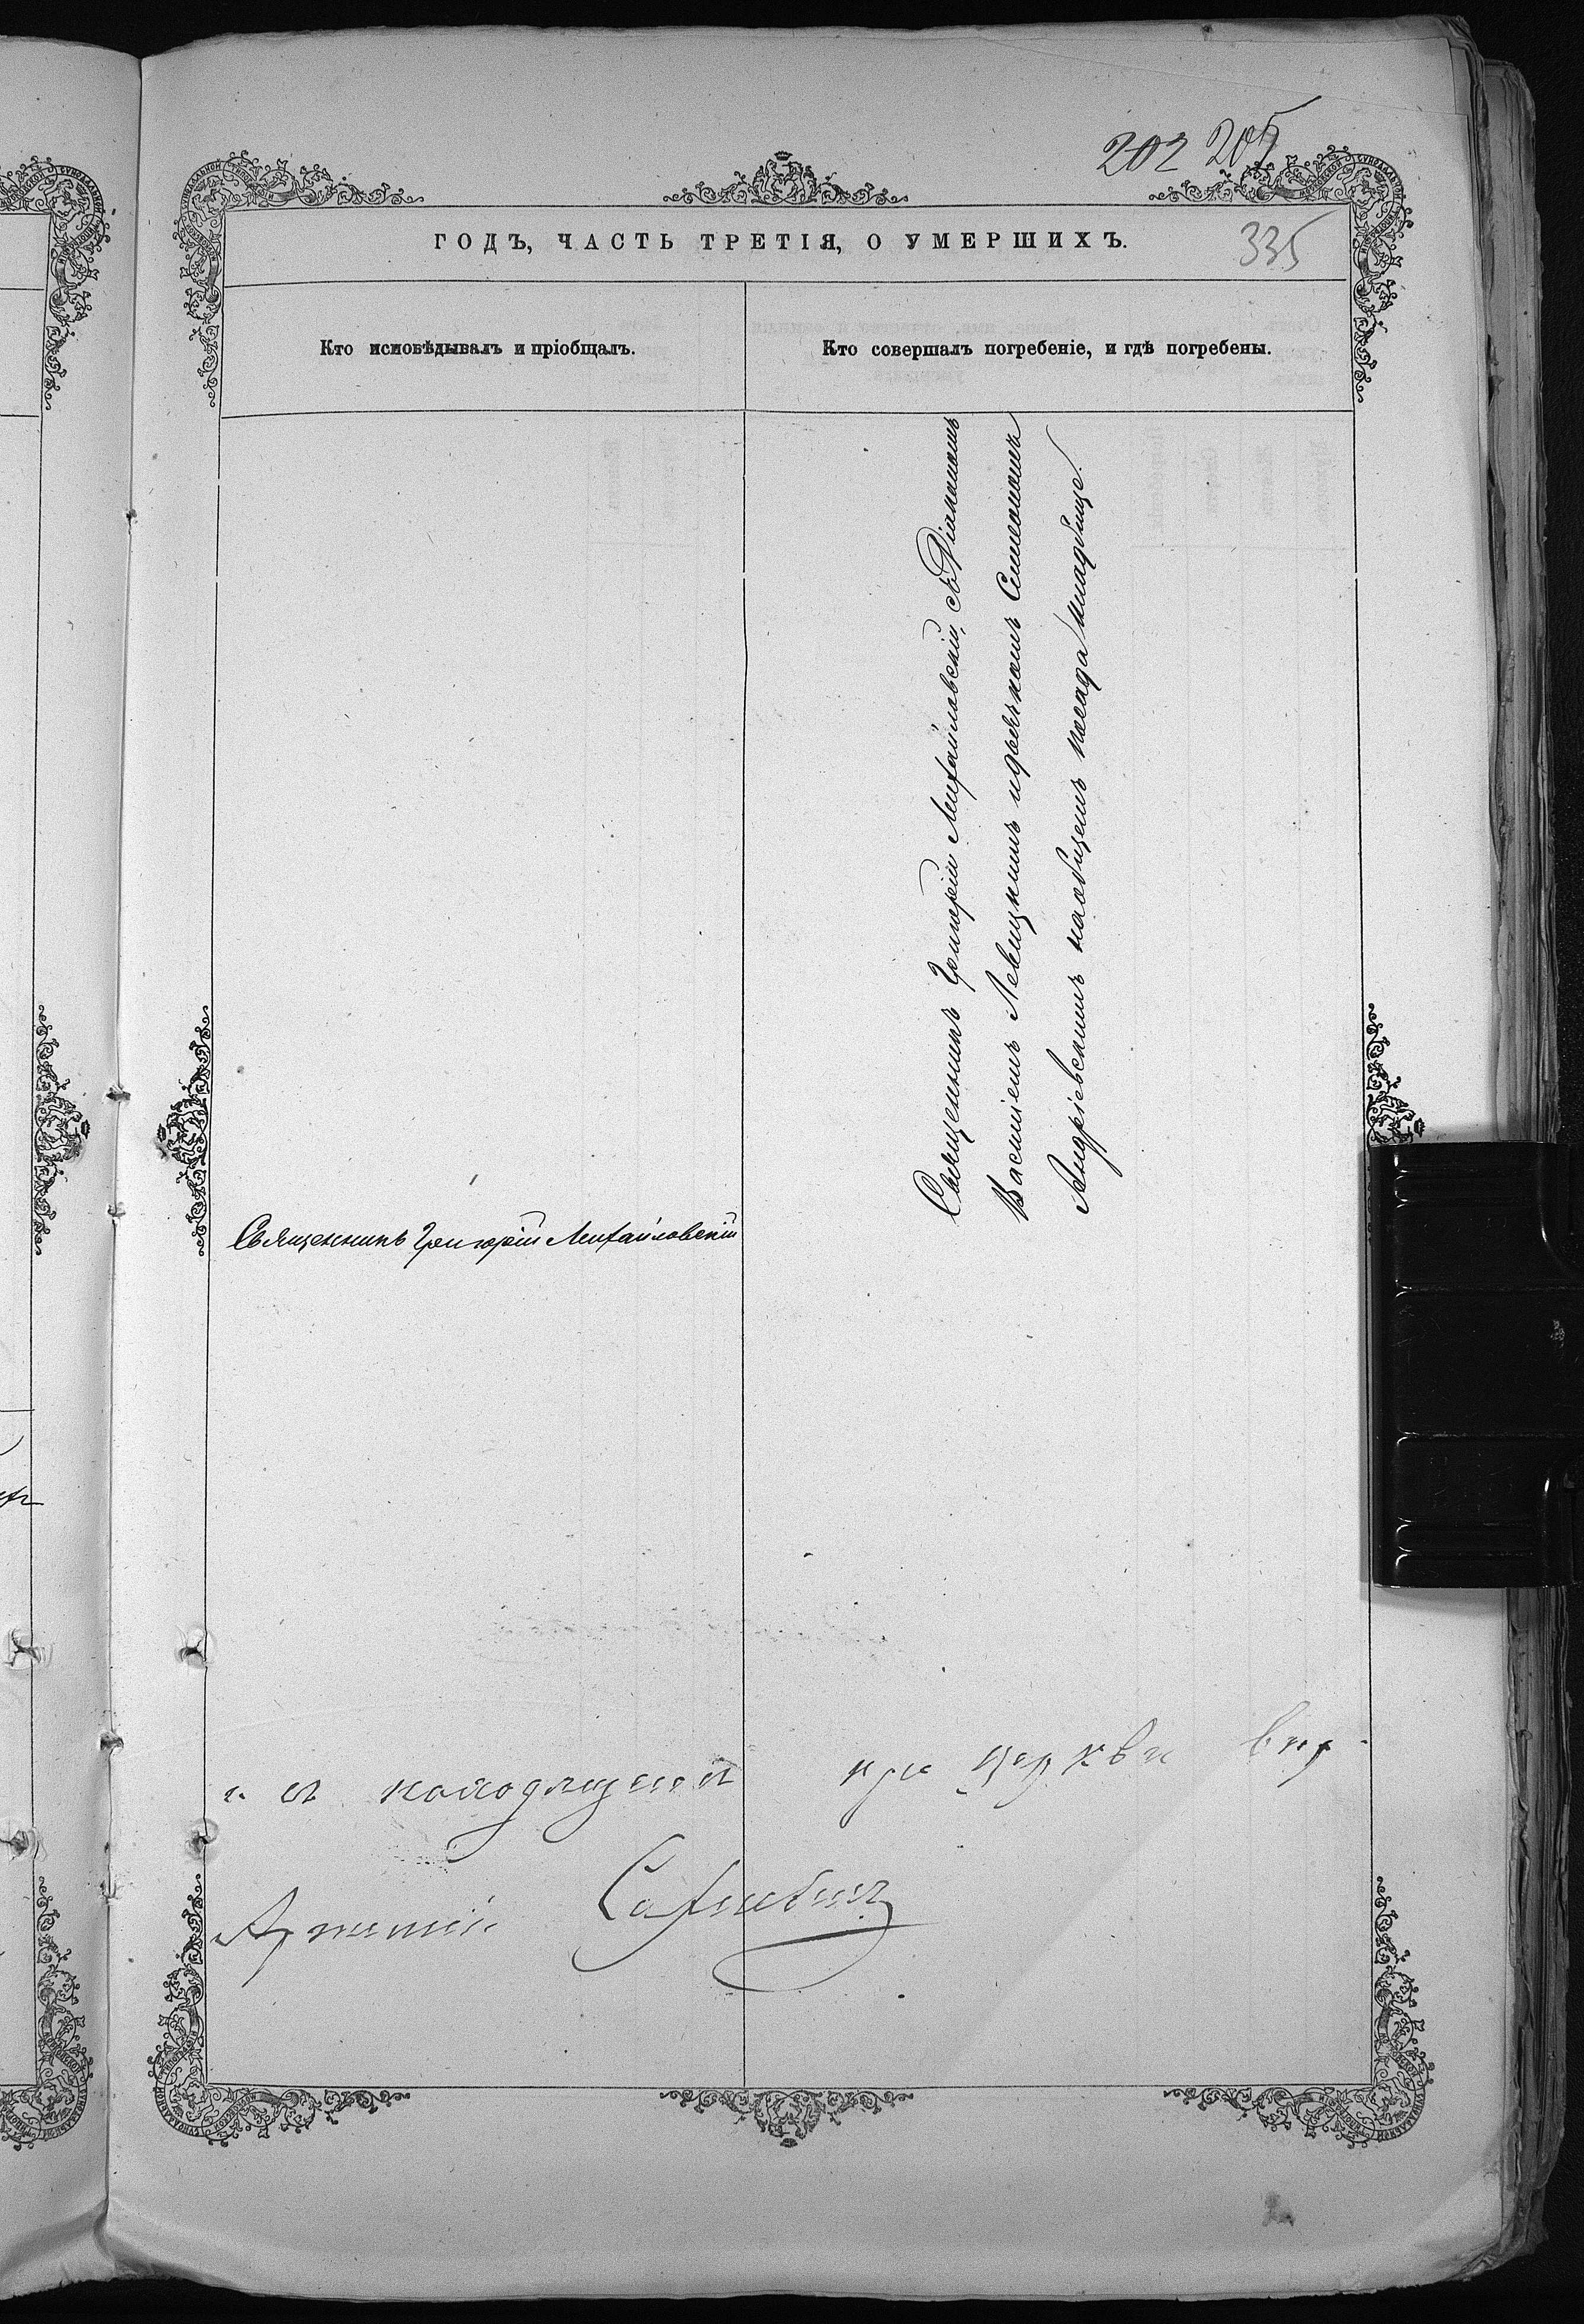 202 205
335
ГОДЪ, ЧАСТЬ ТРЕТІЯ, О УМЕРШИХЪ.
Кто исповѣдывалъ и пріобщалъ.
Кто совершалъ погребеніе, и гдѣ погребены.
Священникъ Григорій Михайловскій
Священникъ Григорій Михайловскій, съ Діакономъ
Василіемъ Левицкимъ и дьячкомъ Симеономъ
Андріевскимъ на общемъ посада кладбище.
съ находящейся при церкви